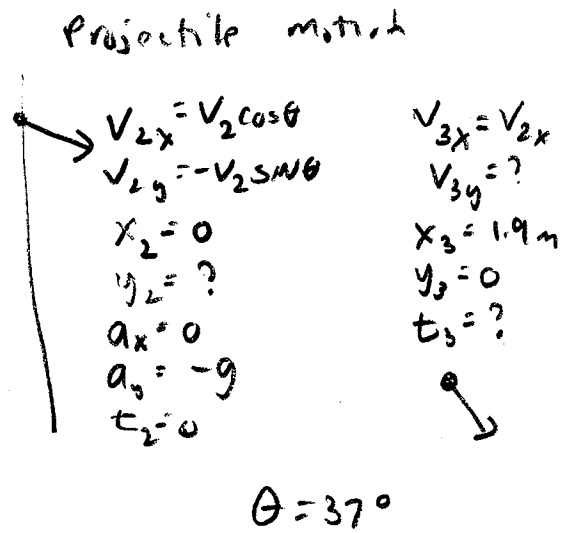 Projectile motion
V₂ₓ = V₂cosθ
V₂y = -V₂ sinθ
x₂ = 0
y₂ = ?
aₓ = 0
ay = -g
t₂ = 0
V₃ₓ = V₂ₓ
V₃y = ?
x₃ = 1.9 m
y₃ = 0
t₃ = ?
θ = 37°